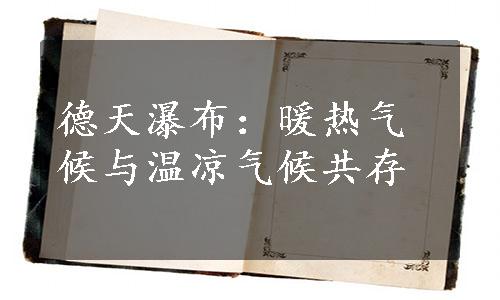 德天瀑布：暖热气
候与温凉气候共存